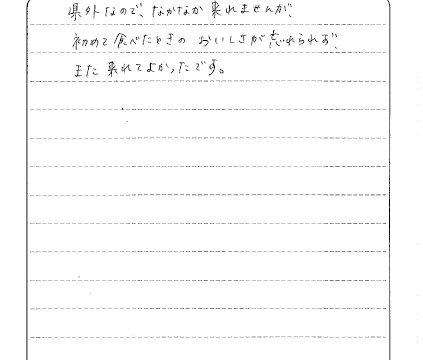 県外なので、なかなか来れませんが、
初めて食べたときの おいしさが忘れられず、
また来れてよかったです。